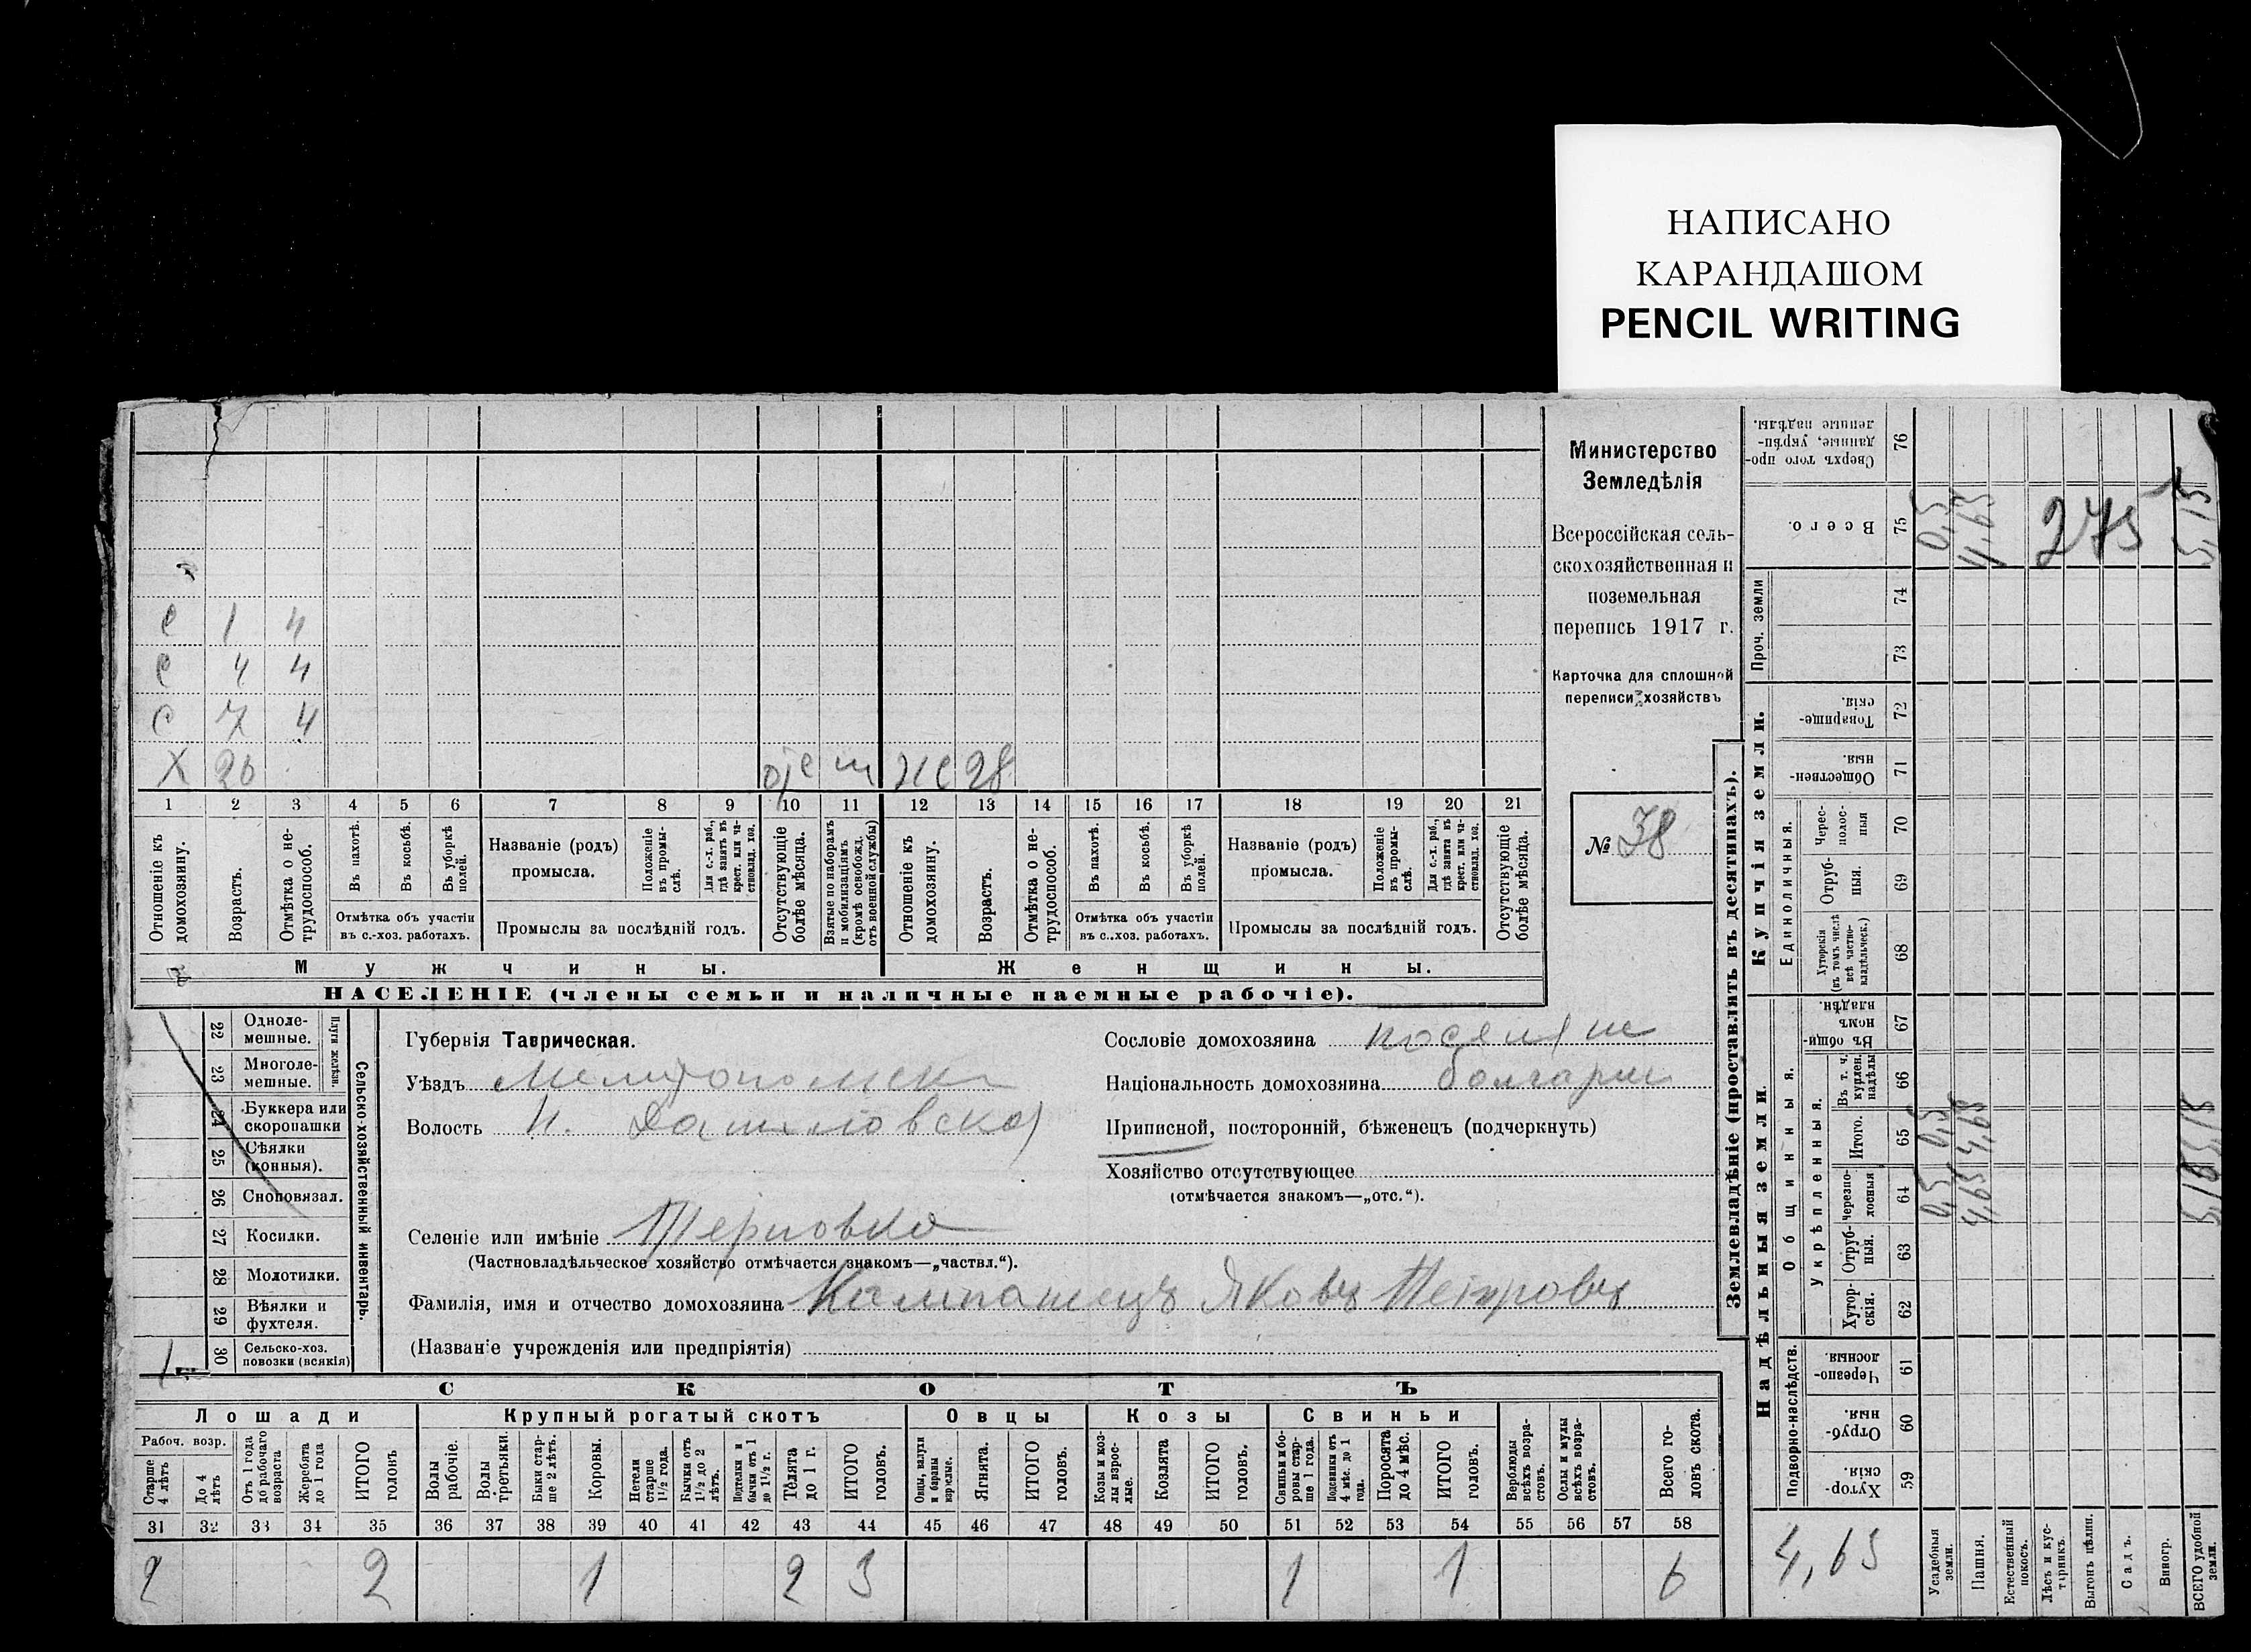 НАПИСАНО
КАРАНДАШОМ
PENCIL WRITING
Министерство
Земледѣлія
Всероссійская сель-
скохозяйственная и
поземельная
перепись 1917 г.
Карточка для сплошной
переписи хозяйствъ
№ 38
с 1 4
с 4 4
с 7 4
Х 26 28
1 2 3 4 5 6 7 8 9 10 11 12 13 14 15 16 17 18 19 20 21
Отношеніе къ домохозяину.
Возрастъ.
Отмѣтка о не-трудоспособ.
Въ пахотѣ.
Въ косьбѣ.
Въ уборкѣ полей.
Названіе (родъ) промысла.
Положеніе въ промы-слѣ.
Для с.-х. раб., гдѣ занятъ въ крест. или ча-стновлад. хоз.
Отсутствующіе болѣе мѣсяца.
Взятые по наборамъ и мобилизаціямъ (кромѣ освобожд. отъ военной службы)
Отношеніе къ домохозяину.
Возрастъ.
Отмѣтка о не-трудоспособ.
Въ пахотѣ.
Въ косьбѣ.
Въ уборкѣ полей.
Названіе (родъ) промысла.
Положеніе въ промы-слѣ.
Для с.-х. раб., гдѣ занята въ крест. или ча-стновлад. хоз.
Отсутствующіе болѣе мѣсяца.
Отмѣтка объ участіи въ с.-хоз. работахъ.
Промыслы за послѣдній годъ.
Отмѣтка объ участіи въ с.-хоз. работахъ.
Промыслы за послѣдній годъ.
Мужчины.
Женщины.
НАСЕЛЕНІЕ (члены семьи и наличные наемные рабочіе).
22 Одноле-мешные.
23 Многоле-мешные.
Плуги желѣзн.
24 Буккера или скоропашки
25 Сѣялки (конныя).
26 Сноповязал.
27 Косилки.
28 Молотилки.
29 Вѣялки и фухтеля.
30 Сельско-хоз. повозки (всякія)
1
Сельско-хозяйственный инвентарь.
Губернія Таврическая.
Уѣздъ
Волость Н. Даниловская
Селеніе или имѣніе Терновка
(Частновладѣльческое хозяйство отмѣчается знакомъ—„частвл.“).
Фамилія, имя и отчество домохозяина Яковъ Петровъ
(Названіе учрежденія или предпріятія)
Сословіе домохозяина поселяне
Національность домохозяина болгарин
Приписной, посторонній, бѣженецъ (подчеркнуть)
Хозяйство отсутствующее
(отмѣчается знакомъ—„отс.“).
СКОТЪ
Лошади Крупный рогатый скотъ Овцы Козы Свиньи
Рабоч. возр.
Старше 4 лѣтъ
До 4 лѣтъ
Отъ 1 года до рабочаго возраста
Жеребята до 1 года
ИТОГО головъ
Волы рабочіе.
Волы третьяки.
Быки стар-ше 2 лѣтъ.
Коровы.
Нетели старше 1½ года.
Бычки отъ 1½ до 2 лѣтъ.
Подтелки и бычки отъ 1 до 1½ г.
Телята до 1 г.
ИТОГО головъ.
Овцы, валухи и бараны взрослые.
Ягнята.
ИТОГО головъ.
Козы и коз-лы взрос-лые.
Козлята
ИТОГО головъ.
Свиньи и бо-ровы стар-ше 1 года.
Подсвинки отъ 4 мѣс. до 1 года.
Поросята до 4 мѣс.
ИТОГО головъ.
Верблюды всѣхъ возра-стовъ.
Ослы и мулы всѣхъ возра-стовъ.
Всего го-ловъ скота.
31 32 33 34 35 36 37 38 39 40 41 42 43 44 45 46 47 48 49 50 51 52 53 54 55 56 57 58
2 2 1 2 3 1 1 6
Землевладѣніе (проставлять въ десятинахъ).
Надѣльныя земли.
Купчія земли.
Проч. земли
Подворно-наслѣдств.
Общинныя.
Укрѣпленныя.
Единоличныя.
59 Хутор-скія.
60 Отруб-ныя.
61 Черезпо-лосныя
62 Хутор-скія.
63 Отруб-ныя.
64 Черезпо-лосныя
65 Итого.
66 Въ т. ч. купчен. надѣлы
67 Въ общин-номъ владѣн.
68 Хуторскія (въ томъ числѣ всѣ частно-владѣльческ.)
69 Отруб-ныя.
70 Черес-полос-ныя
71 Обществен-ныя
72 Товарище-скія.
73
74
75 Всего.
76 Сверхъ того про-данные, укрѣп-ленные надѣлы.
4,65
Усадебныя земли.
Пашня.
Естественный покосъ.
Лѣсъ и кус-тарникъ.
Выгонъ цѣлин.
Садъ.
Виногр.
ВСЕГО удобной земли.
0,5 0,5 0,5
4,65 4,65 4,65
275
5,15 5,15 5,15